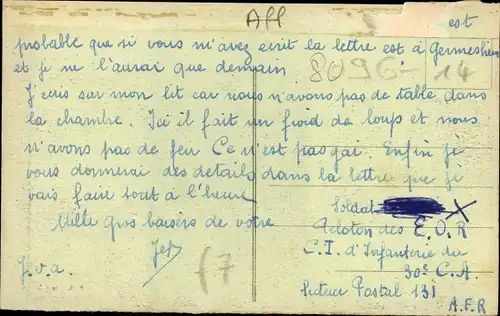 All
est
probable que si vous m'avez ecrit la lettre est à Germesheim
et je ne l'aurai que demain
8096-14
J'ecris sur mon lit car nous n'avons pas de table dans
la chambre. Ici il fait un froid de loups et nous
n'avons pas de feu Ce n'est pas gai. Enfin je
vous donnerai des details dans la lettre que je
vais faire tout à l'heure
Mille gros baisers de votre
J.v.a.
f7
Soldat X
Peloton des E.O.R
C.I. d'Infanterie du
30e C.A.
Secteur Postal 131
A.F.R